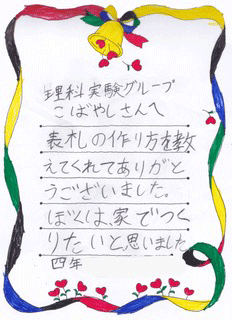 理科実験グループ
こばやしさんへ
表札の作り方を教
えてくれてありがと
うございました。
ぼくは、家でつく
りたいと思いました
四年